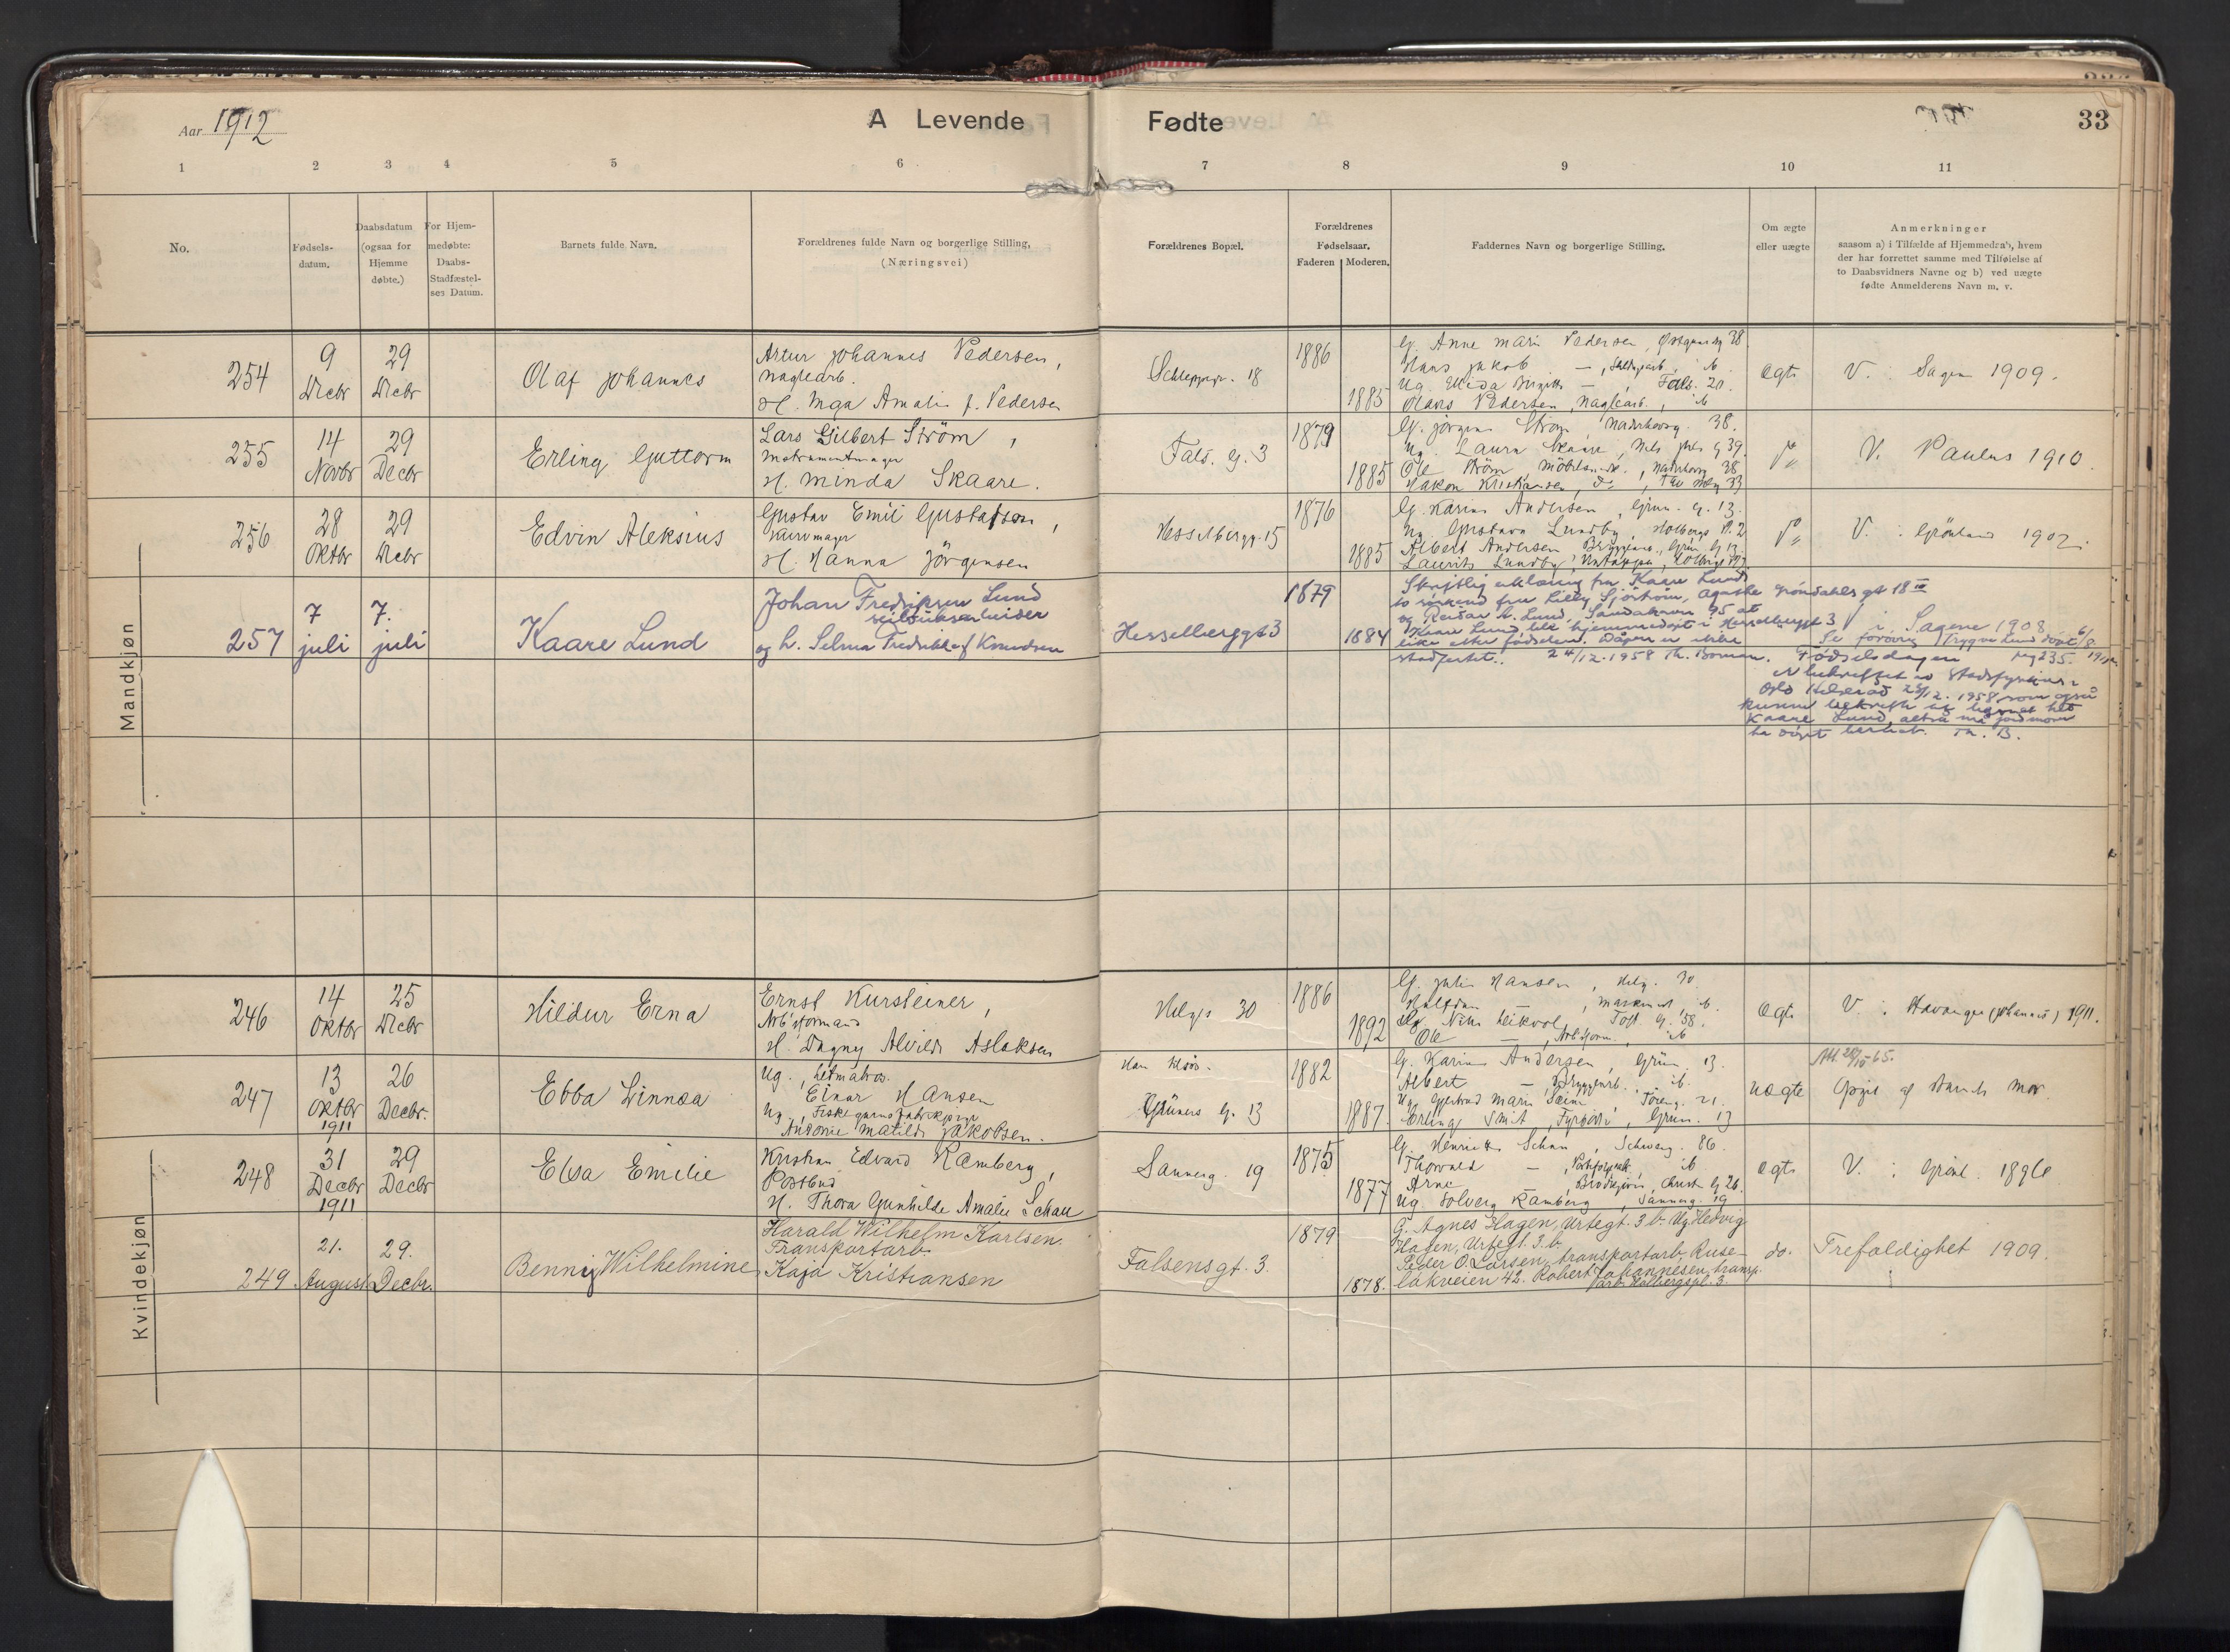 Aar 1912
A Levende Fødte
33
1 2 3 4 5 6 7 8 9 10 11
No.
Fødsels-
datum.
Daabsdatum
(ogsaa for
Hjemme
døbte.)
For Hjem-
medøbte:
Daabs-
Stadfæstel-
ses Datum.
Barnets fulde Navn.
Forældrenes fulde Navn og borgerlige Stilling.
(Næringsvei)
Forældrenes Bopæl.
Forældrenes
Fødselsaar.
Faderen Moderen.
Faddernes Navn og borgerlige Stilling.
Om ægte
eller uægte
Anmerkninger
saasom a) i Tilfælde af Hjemmedaab, hvem
der har forrettet samme med Tilføielse af
to Daabsvidners Navne og b) ved uægte
fødte Anmelderens Navn m. v.
Mandkjøn
254
9
Decbr
29
Decbr
Olaf Johannes
Artur Johannes Pedersen,
Naglearb.
H. Inga Amalie f. Pedersen
Schleppegr. 18
1886
1885
G. Anne Marie Pedersen, 38
Hans Jakob — ib.
Ug. — Fals. 20.
Olaves Pedersen, Naglearb., ib
Ægte
V. i Sagene 1909.
255
14
Novbr
29
Decbr
Erling Guttorm
Lars Gilbert Strøm,
Instrumentmager
H. Minda Skaare.
Fals. G. 3
1879
1885
G. Jørgine Strøm 38.
Ug. Laura Skaare, Nels Juels G 39.
Ole Strøm, 38
Hakon Kristiansen, 33
V. Paulus 1910
256
28
Oktbr
29
Decbr
Edvin Aleksius
Gustav Emil Gustafson,
Kurvmager
H. Hanna Jörgensen
Hesselbergg. 15
1876
1885
G. Karine Andersen, Grün. G. 13.
Ug. Gustava Lundby, Holbergs Pl. 2
Albert Andersen Bryggearb., Grün. G 13.
Laurits Lundby,
V. i Grönland 1902
257
7
juli
7.
juli
Kaare Lund
Johan Fredriksen Lund
seilduksarbeider
og h. Selma Fredrikke f. Knudsen
Hesselberggt 3
1879
1884
Skriftlig erklæring fra Kaare Lunds
to søskend fru Lilly Sjöström, Agathe Gröndahls gt 18 III
og Reidar A. Lund, Sandakerv 95 at
Kaare Lund blev hjemmedøpt i Hesselberggt 3
like etter fødselen. Dåpen er ikke
stadfestet. 24/12. 1958 Th. Boman.
V i Sagene 1908
Se forøvrig Trygve Lund døpt 6/8
1911 235.
Fødselsdagen
er bekreftet av Stadsfysikus i
Oslo Helseråd 23/12. 1958 som også
kunne bekrefte at barnet het
Kaare Lund, altså må jordmor
ha døpt barnet. Th. B.
Kvindekjøn
246
14
Oktbr
25
Decbr
Hildur Erna
Ernst Kursteiner,
Arb'sformand
H. Dagny Alvilde Aslaksen
Helgs 30
1886
1892
G. Julie Hansen, Helg. 30
Halfdan — Maskinist, ib.
Ug. Toft. G. 58.
Ole — Arb'sform., ib
Ægte
V. i Stavanger (Johannes) 1911.
247
13
Oktbr
1911
26
Decbr.
Ebba Linnea
Ug., Letmatros.
Einar Hansen
Ug., Fiskegarnsfabrikpige
Antonie Matilde Jakobsen.
Han
Grüners G. 13
1882
1887.
G. Karine Andersen, Grün 13.
Albert — Bryggearb. ib.
Ug. Gjertrud Marie Seim Töieng. 21.
Erling Smit, Fyrböd., Grün. 13
uægte
Att. 28/10-65.
Opgit af Barnets Mor.
248
31
Decbr
1911
29
Decbr
Elsa Emilie
Kristian Edvard Ramberg,
Postbud
H. Thora Gunhilde Amalie Schau
Sannerg. 19
1875
1877
G. Henriette Schau, Schweig. 86
Thorvald — ib
Arne — Brödkjörer, Christ. G 26.
Ug. Solveig Ramberg, Sannerg. 19
Ægte
V. i Grönl. 1896
249
21.
August
29.
Decbr.
Benny Wilhelmine
Harald Wilhelm Karlsen.
Transportarb.
Kaja Kristiansen
Falsensgt. 3.
1879
1878.
G. Agnes Hagen, Urtegt. 3 b. Ug. Hedvig
Hagen, Urtegt. 3. b.
Peder O. Larsen, transportarb. Ruse-
løkveien 42. Robert Johannesen, transp.
arb. Holbergspl. 3.
do.
Trefoldighet 1909.